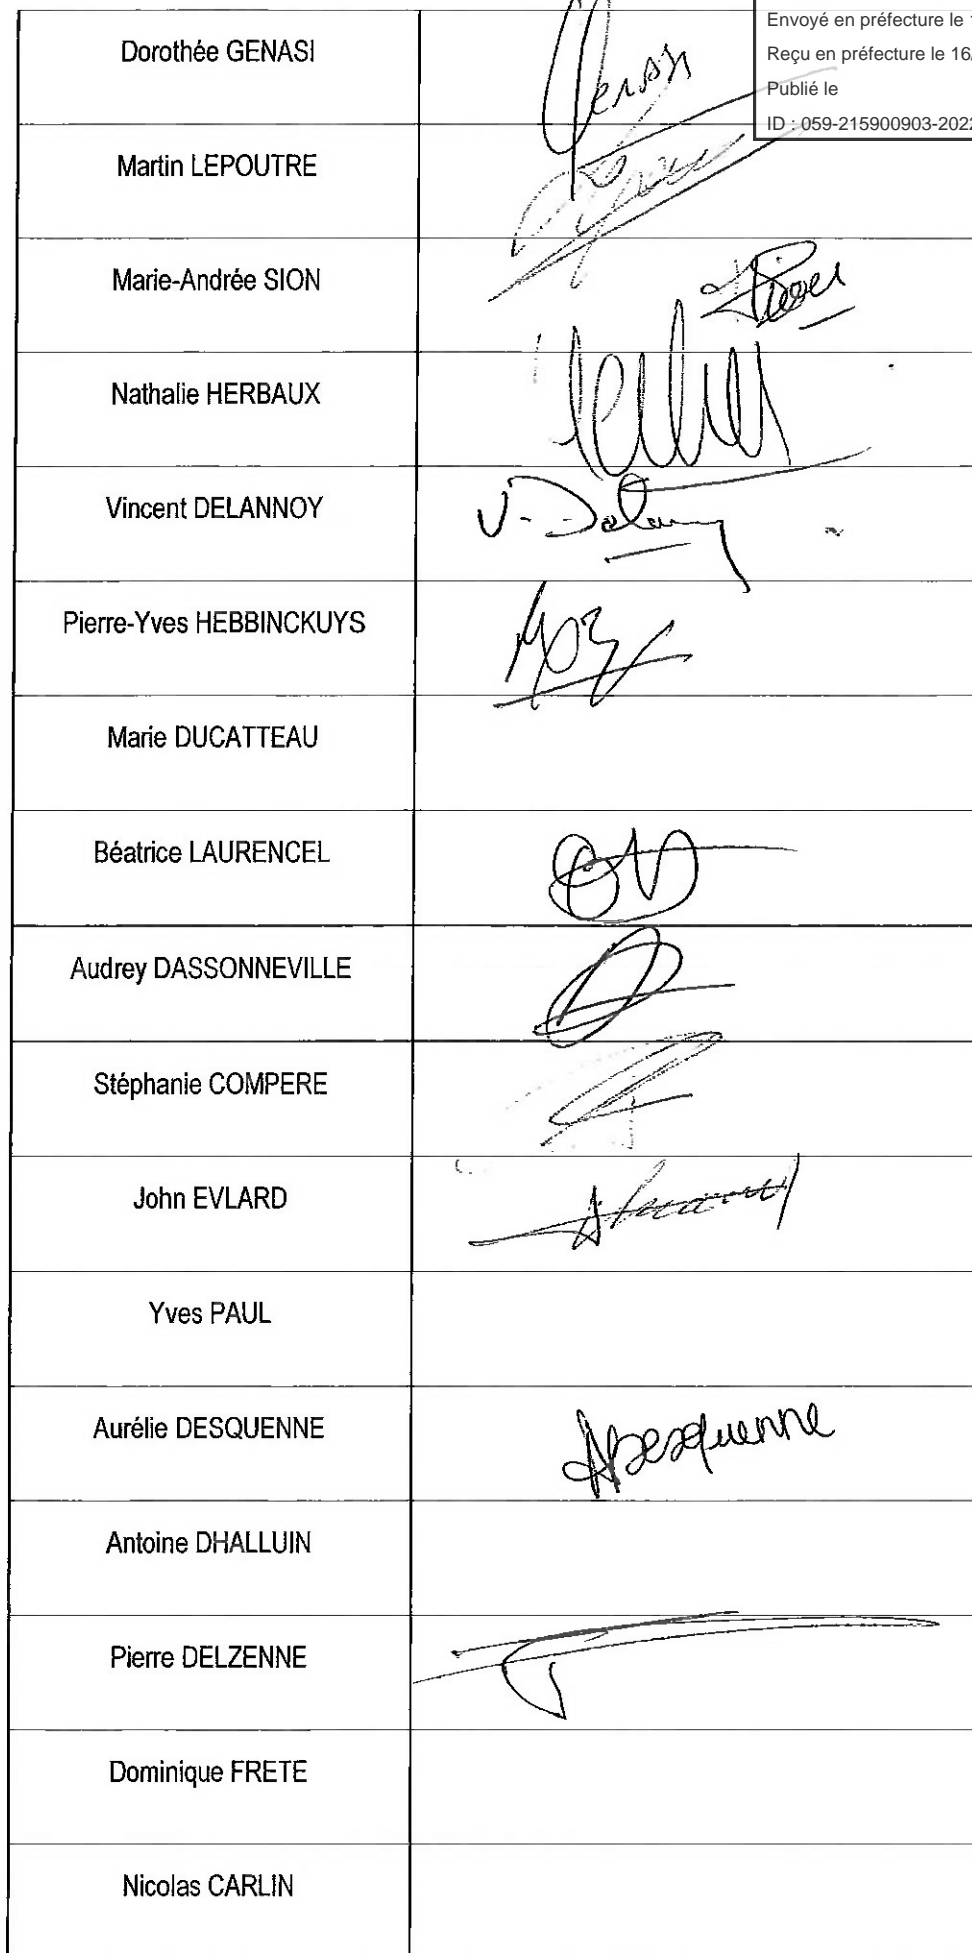 Envoyé en préfecture le
Reçu en préfecture le 16
Publié le
ID : 059-215900903-202
Dorothée GENASI
Genasi
Martin LEPOUTRE
Marie-Andrée SION
Nathalie HERBAUX
Vincent DELANNOY
V. Delannoy
Pierre-Yves HEBBINCKUYS
Marie DUCATTEAU
Béatrice LAURENCEL
Audrey DASSONNEVILLE
Stéphanie COMPERE
John EVLARD
Yves PAUL
Aurélie DESQUENNE
ADesquenne
Antoine DHALLUIN
Pierre DELZENNE
Dominique FRETE
Nicolas CARLIN